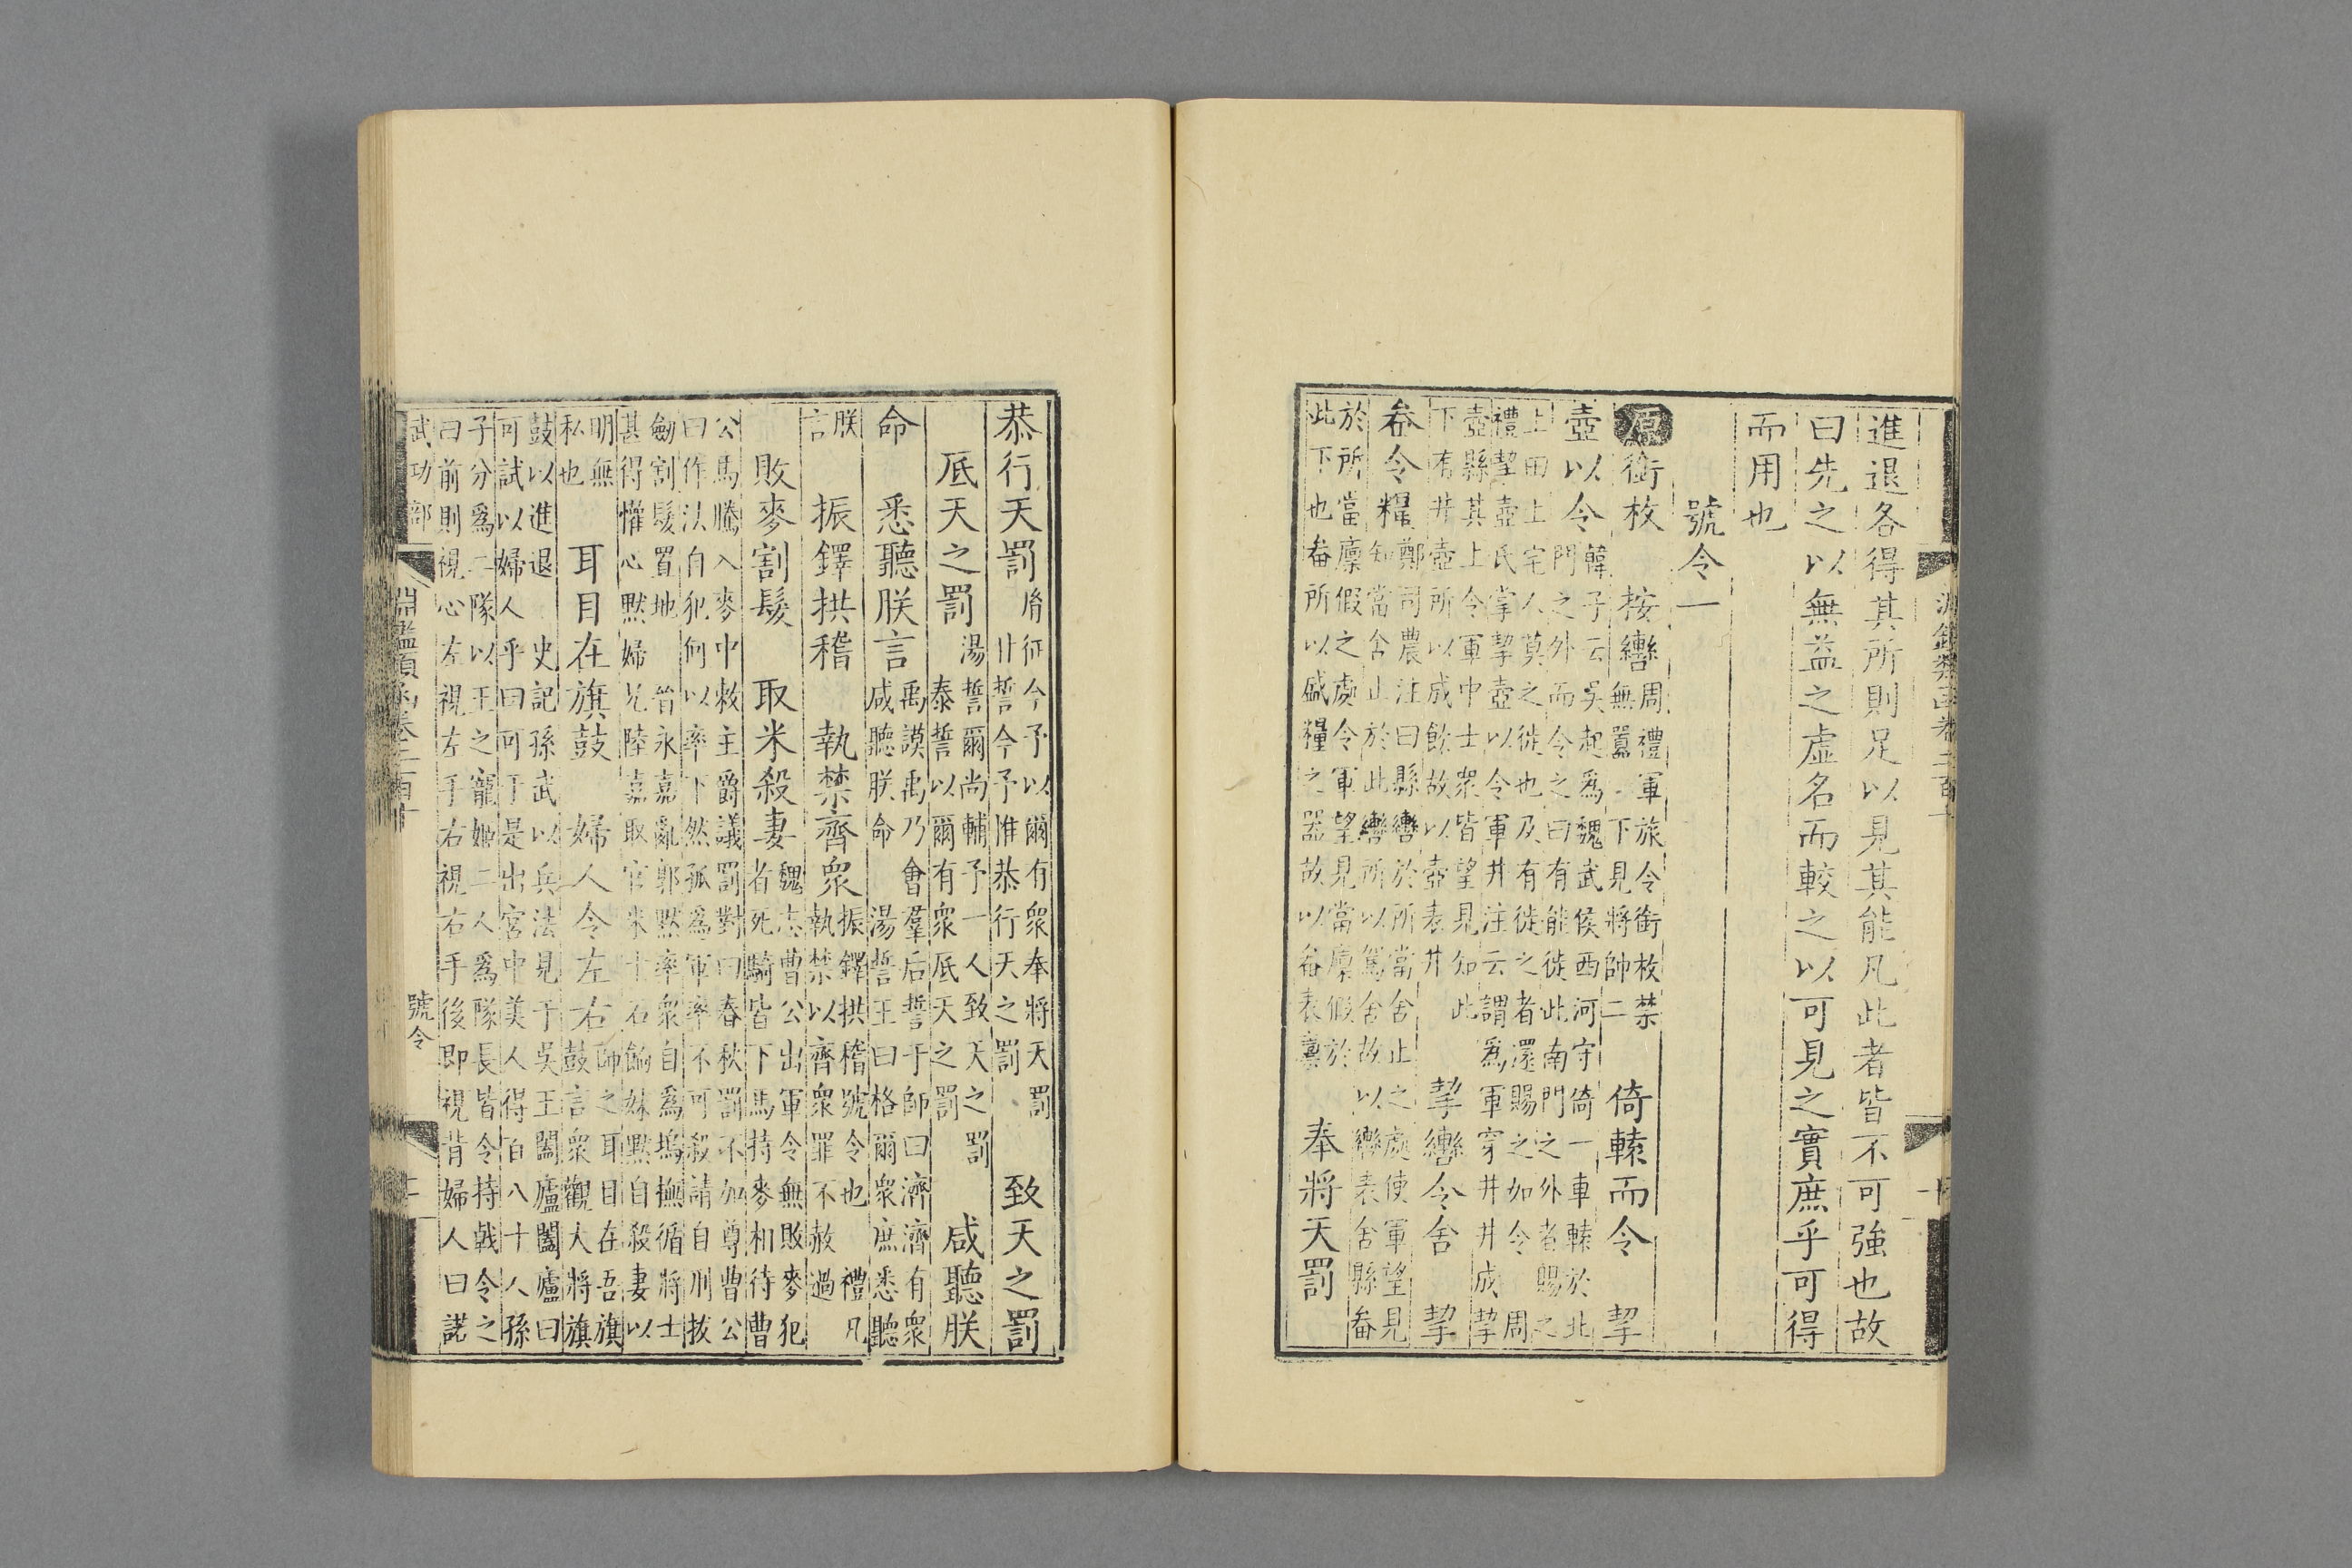 進退各得其所則足以見其能凡此者皆不可強也故
曰先之以無益之虛名而較之以可見之實庶乎可得
而用也
號令一
原銜枚 按轡周禮軍旅令銜枚禁
無嚻 下見將帥二 倚轅而令 挈
壺以令韓子云吳起為魏武侯西河守倚一車轅於北
門之外而令之曰有能徙此南門之外者賜之
上田上宅人莫之徙也及有徙之者還賜之如令 周
禮挈壺氏掌挈壺以令軍井注云謂為軍穿井井成挈
壺縣其上令軍中士衆皆望見知此
下有井壺所以成飲故以壺表井 挈轡令舍 挈
畚令糧鄭司農注曰縣轡於所當舍止之處使軍望見
知當舍止於此轡所以駕舍故以轡表舍縣畚
於所當廩假之處令軍望見當廩假於
此下也畚所以盛糧之器故以畚表廩 奉將天罰
恭行天罰胤征今予以爾有衆奉將天罰
甘誓今予惟恭行天之罰 致天之罰
底天之罰湯誓爾尚輔予一人致天之罰
泰誓以爾有衆底天之罰 咸聽朕
命 悉聽朕言禹謨禹乃會羣后誓于師曰濟濟有衆
咸聽朕命 湯誓王曰格爾衆庶悉聽
朕
言 振鐸拱稽 執禁齊衆振鐸拱稽號令也 禮凡
執禁以齊衆罪不赦過
敗麥割髮 取米殺妻魏志曹公出軍令無敗麥犯
者死騎皆下馬持麥相待曹
公馬騰入麥中敕主爵議罰對曰春秋罰不加尊曹公
曰作法自犯何以率下然孤為軍率不可殺請自刑拔
劒割髮置地 晉永嘉亂郭默率衆自為塢撫循將士
甚得懽心默婦兄陸嘉取官米十石餉妹默自殺妻以
明無
私也 耳目在旗鼓 婦人令左右師之耳目在吾旗
鼓言衆觀大將旗
鼓以進退 史記孫武以兵法見于吳王闔廬闔廬曰
可試以婦人乎曰可于是出宮中美人得百八十人孫
子分為二隊以王之寵姬二人為隊長皆令持戟令之
曰前則視心左視左手右視右手後即視背婦人曰諾
武功部 淵鑑類函卷二百十 號令